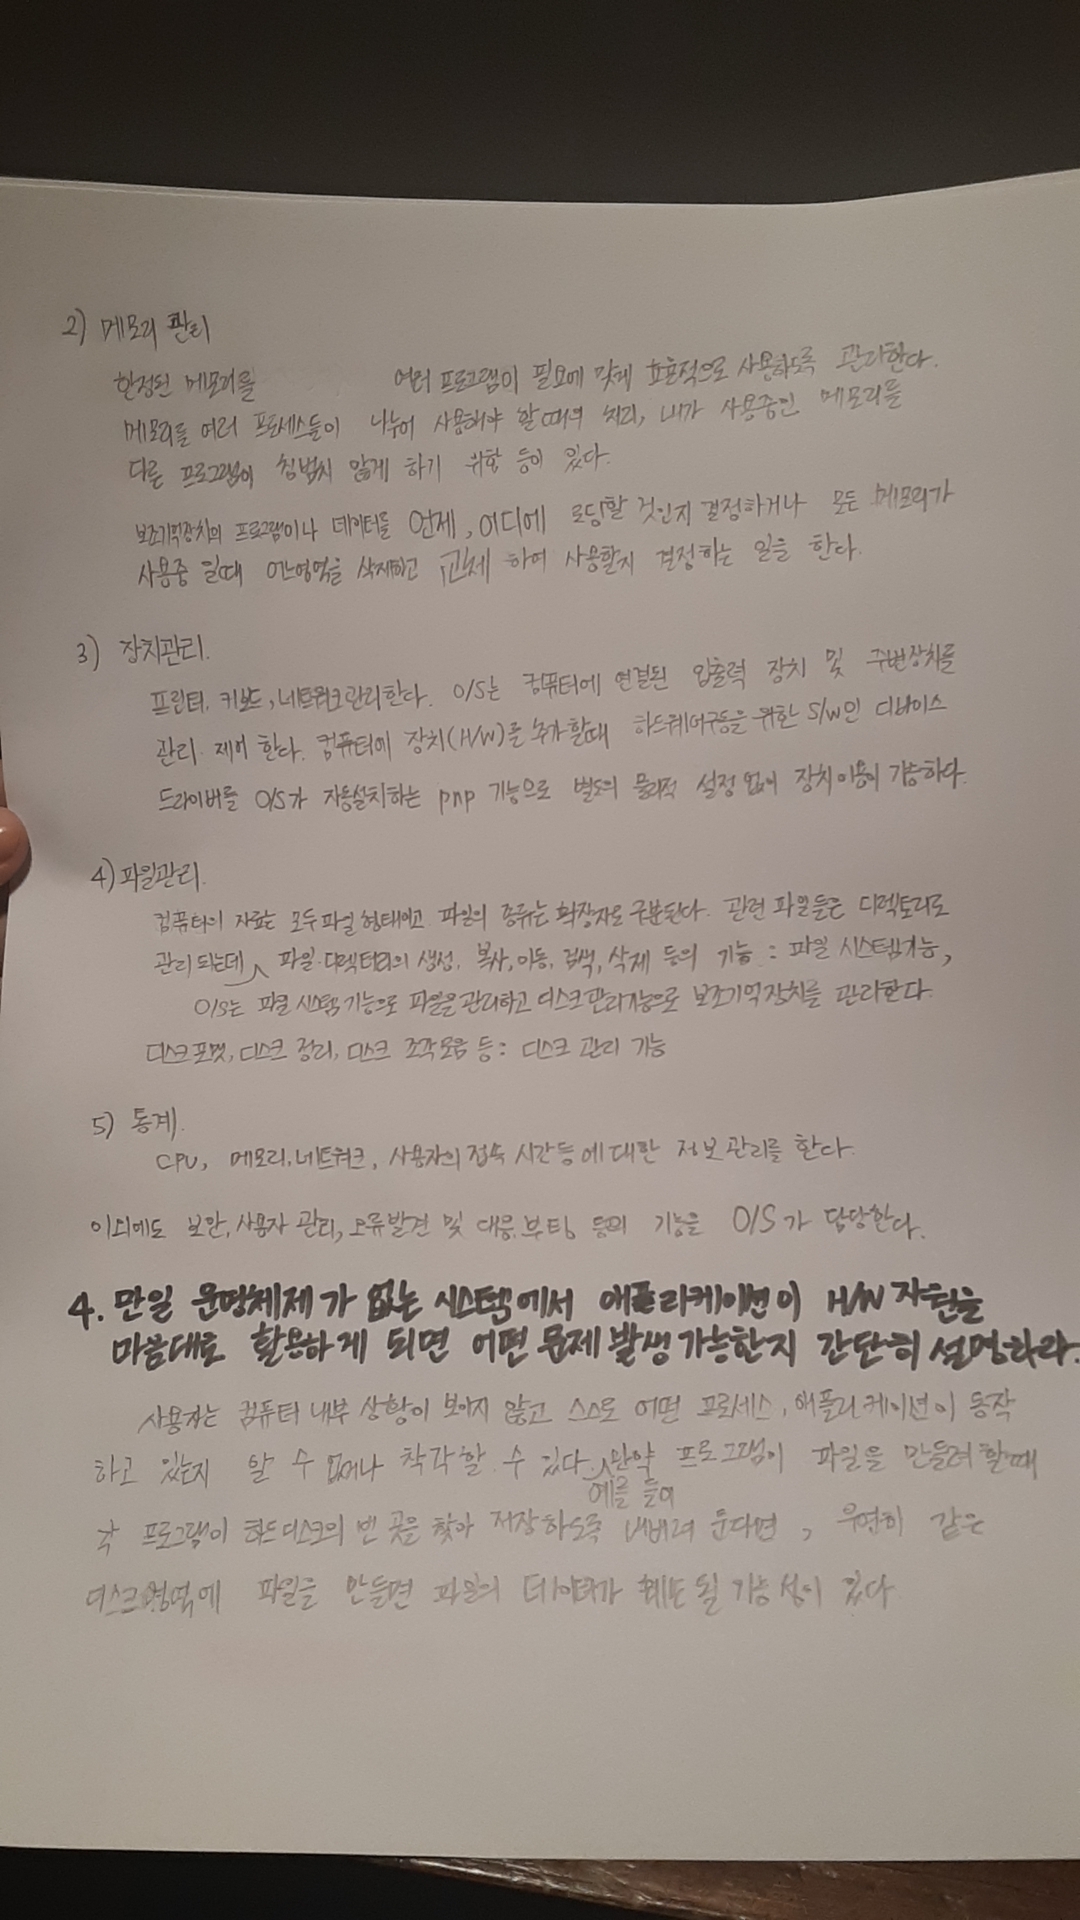 2) 메모리 관리
한정된 메모리를 여러 프로그램이 필요에 맞게 효율적으로 사용하도록 관리한다.
메모리를 여러 프로세스들이 나누어 사용해야 할때의 처리, 내가 사용중인 메모리를
다른 프로그램이 침범치 않게 하기 위함 등이 있다.
보조기억장치의 프로그램이나 데이터를 언제, 어디에 로딩할 것인지 결정하거나 모든 메모리가
사용중 일때 어느영역을 삭제하고 교체 하여 사용할지 결정하는 일을 한다.
3) 장치관리.
프린터, 키보드, 네트워크관리한다. O/S는 컴퓨터에 연결된 입출력 장치 및 주변장치를
관리·제어 한다. 컴퓨터에 장치(H/W)를 추가할때 하드웨어구동을 위한 S/W인 디바이스
드라이버를 O/S가 자동설치하는 pnp 기능으로 별도의 물리적 설정 없이 장치이용이 가능하다.
4) 파일관리.
컴퓨터의 자료는 모두파일형태이고 파일의 종류는 확장자로 구분된다. 관련 파일들은 디렉토리로
관리 되는데 파일·디렉터리의 생성, 복사, 이동, 검색, 삭제 등의 기능 : 파일 시스템기능,
O/S는 파일 시스템 기능으로 파일을 관리하고 디스크관리기능으로 보조기억장치를 관리한다.
디스크포맷, 디스크 정리, 디스크 조각모음 등 : 디스크 관리 기능
5) 통계.
CPU, 메모리, 네트워크, 사용자의 접속 시간등 에 대한 정보 관리를 한다.
이외에도 보안, 사용자 관리, 오류발견 및 대응, 부팅 등의 기능을 O/S가 담당한다.
4. 만일 운영체제가 없는 시스템에서 애플리케이션이 H/W 자원을
마음대로 활용하게 되면 어떤 문제 발생 가능한지 간단히 설명하라.
사용자는 컴퓨터 내부 상황이 보이지 않고 스스로 어떤 프로세스, 애플리케이션이 동작
하고 있는지 알 수 없거나 착각할 수 있다. 만약 프로그램이 파일을 만들려 할때
예를 들어
각 프로그램이 하드디스크의 빈 곳을 찾아 저장하도록 내버려 둔다면, 우연히 같은
디스크영역에 파일을 만들면 파일의 데이터가 훼손 될 가능성이 있다